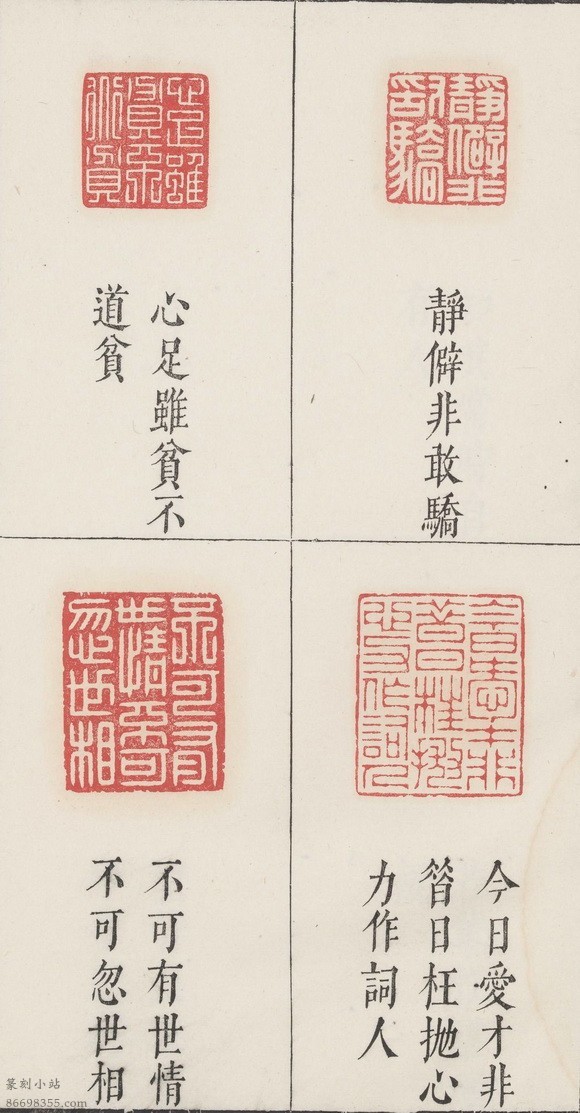 靜僻非敢驕
心足雖貧不
道貧
今日愛才非
昔日枉抛心
力作詞人
不可有世情
不可忽世相
篆刻小站
86698355.com